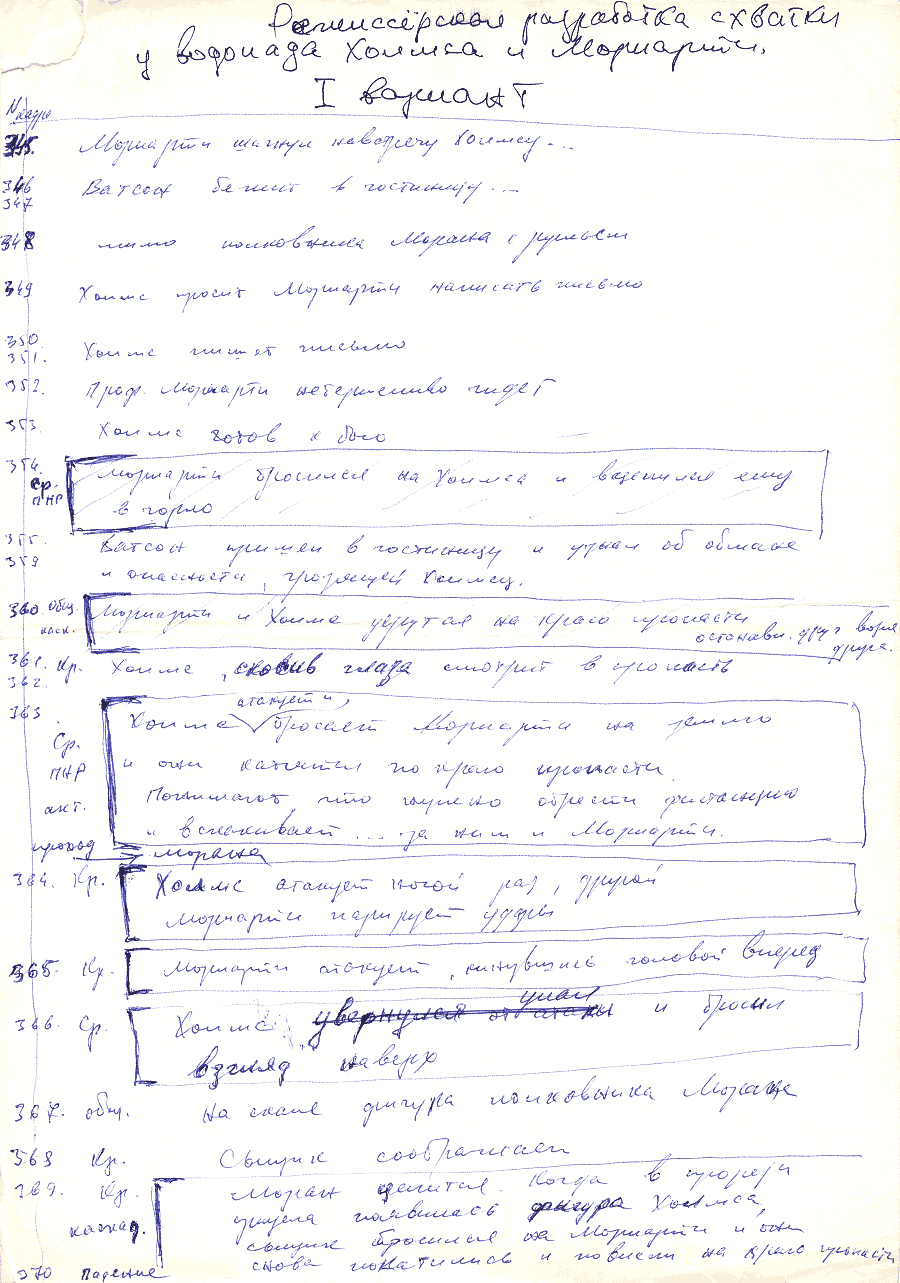 Режиссёрская разработка схватки
у водопада Холмса и Мориарти.
I вариант
N кадра
345. Мориарти шагнул навстречу Холмсу...
346 Ватсон бежит в гостиницу...
347
348 мимо полковника Морана с ружьем
349 Холмс просит Мориарти написать письмо
350. Холмс пишет письмо
351.
352. Проф. Мориарти нетерпеливо ждет
353. Холмс готов к бою
354. Мориарти бросился на Холмса и вцепился ему
ср. ПНР в горло
355. Ватсон прибежал в гостиницу и узнал об обмане
359 и опасности, грозящей Холмсу.
360 общ. Мориарти и Холмс дерутся на краю пропасти
каск. останови. друг возле
друга.
361. Кр. Холмс, скосив глаза смотрит в пропасть
362.
атакует и
363 Холмс бросает Мориарти на землю
Ср. и они катятся по краю пропасти.
ПНР Понимают, что нужно обрести дистанцию
акт. и вскакивает... за ним и Мориарти.
проход Морана
364. Кр. Холмс атакует ногой раз, другой
Мориарти парирует удары
365. Кр. Мориарти атакует, кинувшись головой вперед
упал
366. Ср. Холмс увернулся от атаки и бросил
взгляд наверх
367. общ. На скале фигура полковника Морана
368 Кр. Сыщик соображает
369. Кр. Моран целится. Когда в прорези
каскад. прицела появилась фигура Холмса,
сыщик бросился на Мориарти и они
снова покатились и повисли на краю пропасти
370 Падение